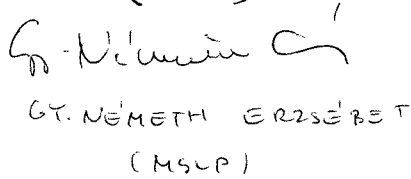 Gy. Németh
GY. NÉMETH ERZSÉBET
(MSZP)